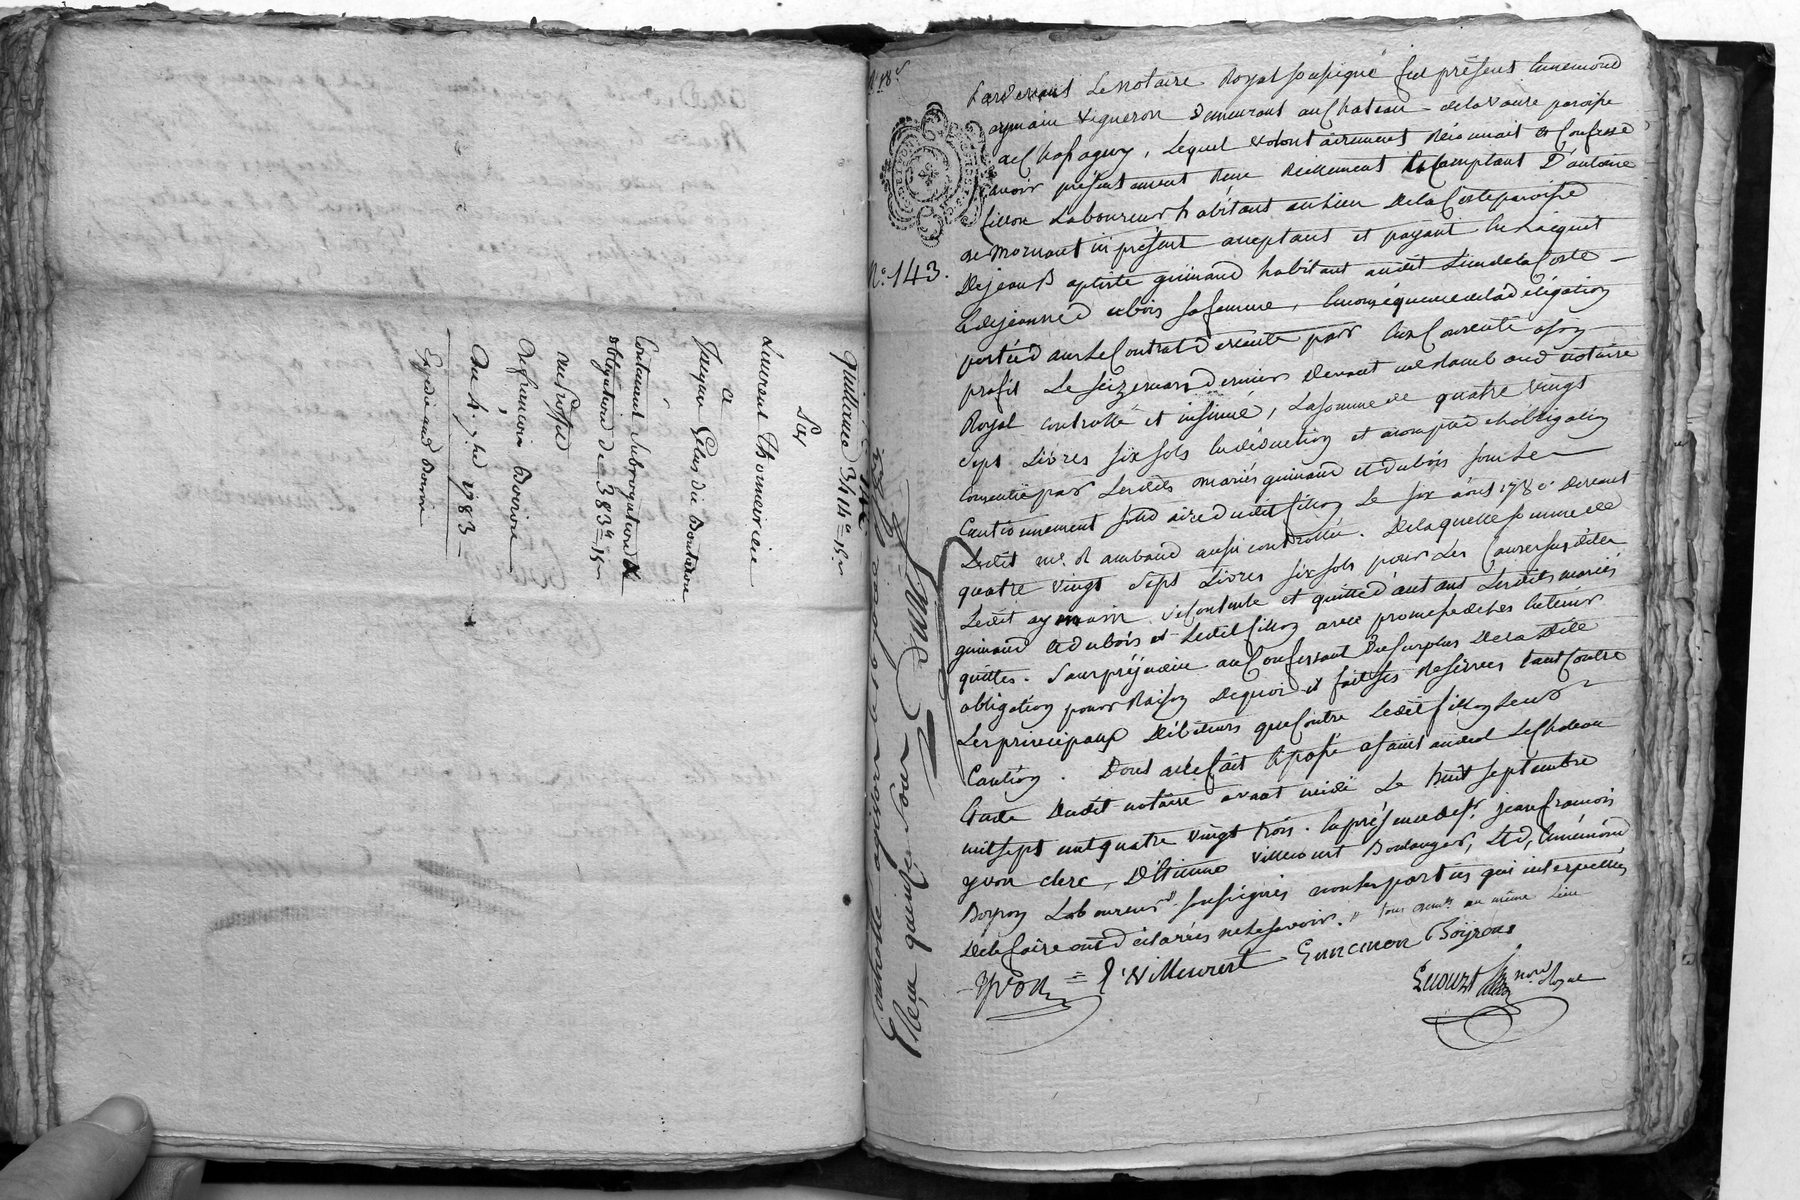 Quittance 344ᵗ 15ˢ
Par
Laurent Thonnerieu
a
Jacques Gelas dit Boutivon
Contenant subrogation &
obligation de 383ᵗ 15ˢ
au proffit
de francois Boiron
Du 4. 7bre 1783
Expedié aud. Boiron
Nº 143.
Pardevant Le notaire Royal soussigné fut présent Ennemond
aymain vigneron demeurant au Chateau de la vaure paroisse
de Chassagny, Lequel volontairement Reconnait et Confesse
avoir présentement Reçu Reellement et Comptant D'antoine
fillon Laboureur habitant au Lieu De la Coste paroisse
de Mornant ici présent acceptant et payant En l'acquit
De jean Baptiste guinand habitant audit Lieu de la Coste
& de jeanne dubois sa femme, En conséquence de la délégation
portée dans Le Contrat de vente par Eux Consenté à son
profit Le seize mars dernier devant me Rambaud notaire
Royal controllé et insinué, La somme de quatre vingt
sept Livres six sols En déduction et acompte de l'obligation
Consentie par Lesdits mariés guinand et dubois sous Le
Cautionnement solidaire dudit fillon Le six août 178 . devant
Ledit me. Rambaud aussi controllée. De laquelle somme de
quatre vingt sept Livres six sols pour Les Causes susdites
Ledit aymain se contente et quitte d'autant Lesdits mariés
guinand et dubois et Ledit fillon avec promesse de les En tenir
quittes. Sans préjudice au Confessant Du surplus De la Dite
obligation pour Raison De quoi il fait ses Reserves tant Contre
Les principaux Débiteurs que Contre Ledit fillon Leur
Caution. Dont acte fait & passé a saint andeol Le Chateau
Etude Dudit notaire avant midi Le huit septembre
mil sept cent quatre vingt trois. En présence de sr. jean francois
yvon clerc, D'Etienne Villecourt Boulanger, et d'Ennémond
Boyron Laboureur soussignés non Les parties qui interpellées
De le faire ont déclarées ne Le savoir. tous deux au même Lieu
Yvon E Villecourt Ennemon Boyron
not Royal
Controllé a givors le 16
Reçu quinze sous